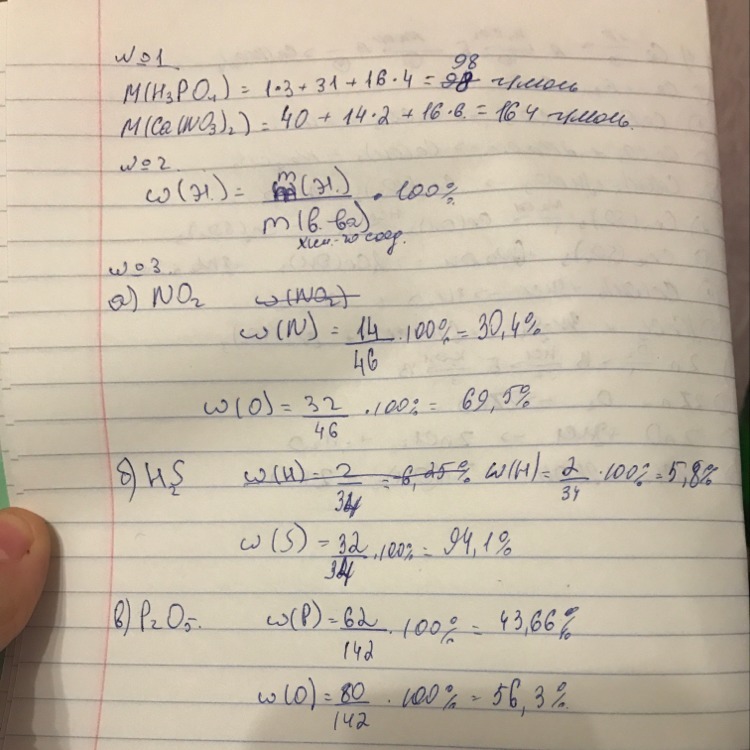 №1
M(H₃PO₄) = 1·3 + 31 + 16·4 = 98 г/моль
M(Ca(NO₃)₂) = 40 + 14·2 + 16·6 = 164 г/моль.
№2
ω(эл.) = m(эл.) / m(в-ва) · 100%
хим-го соед.
№3
а) NO₂ ω(NO₂)
ω(N) = 14/46 · 100% = 30,4%
ω(O) = 32/46 · 100% = 69,5%
б) H₂S ω(H) = 2/34 = 6,25% ω(H) = 2/34 · 100% = 5,8%
ω(S) = 32/34 · 100% = 94,1%
в) P₂O₅. ω(P) = 62/142 · 100% = 43,66%
ω(O) = 80/142 · 100% = 56,3%